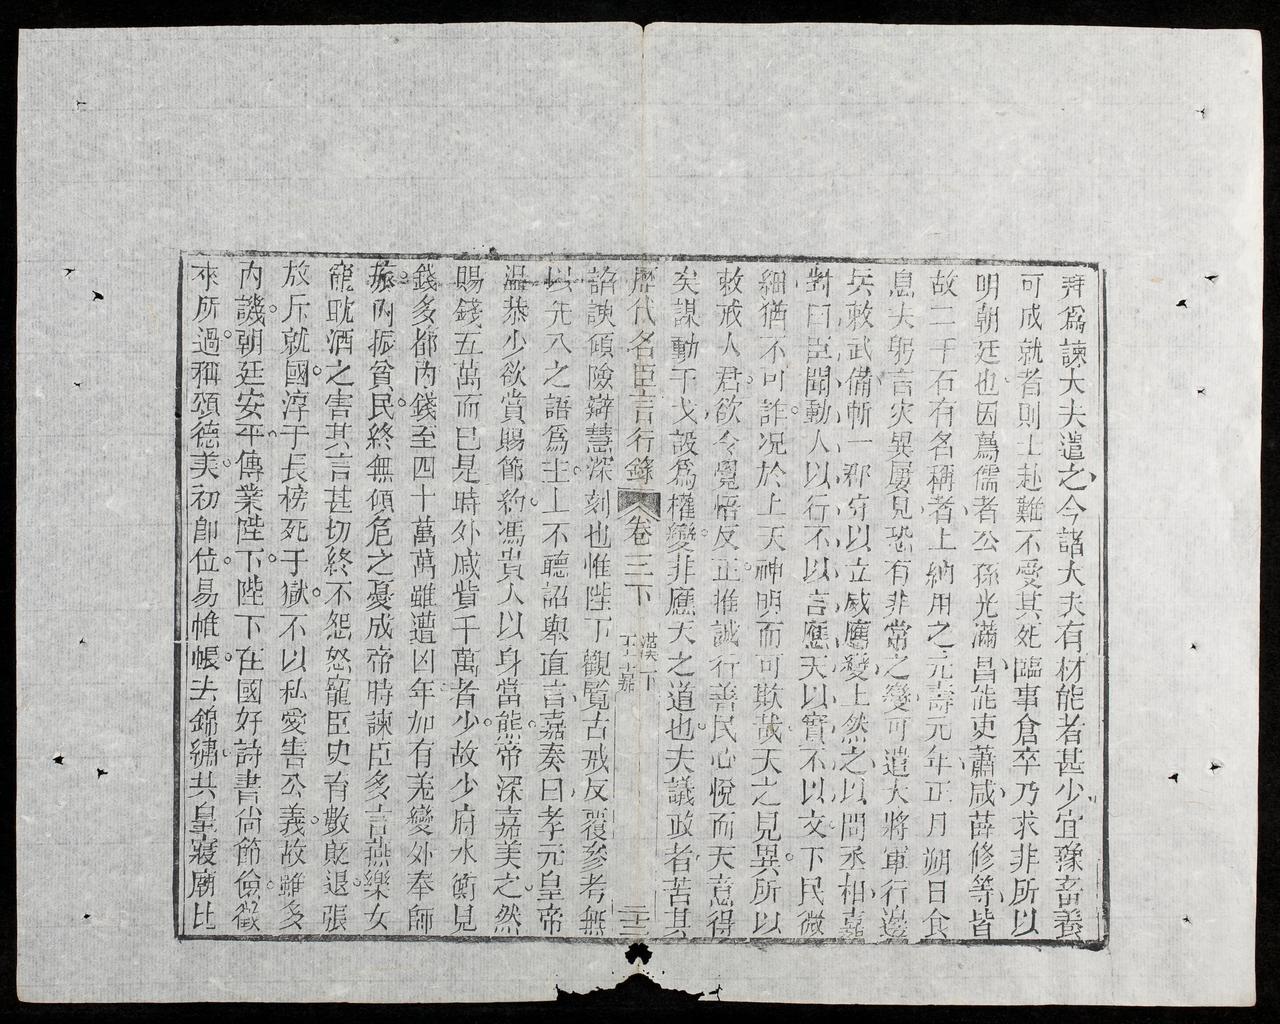 拜爲諫大夫遣之今諸大夫有材能者甚少宜豫畜養
可成就者則士赴難不愛其死臨事倉卒乃求非所以
明朝廷也因薦儒者公孫光滿昌能吏蕭咸薛修等皆
故二千石有名稱者上納用之元壽元年正月朔日食
息夫躬言災異屢見恐有非常之變可遣大將軍行邊
兵敕武備斬一郡守以立威應變上然之以問丞相嘉
對曰臣聞動人以行不以言應天以實不以文下民微
細猶不可詐况於上天神明而可欺哉天之見異所以
敕戒人君欲令覺悟反正推誠行善民心悅而天意得
矣謀動干戈設爲權變非應天之道也夫議政者苦其
歷代名臣言行錄 卷三下 漢下 王嘉 三十三
諂諛傾險辯慧深刻也惟陛下觀覽古戒反覆參考無
以先入之語爲主上不聽詔舉直言嘉奏曰孝元皇帝
温恭少欲賞賜節約馮貴人以身當熊帝深嘉美之然
賜錢五萬而已是時外戚貲千萬者少故少府水衡見
錢多都內錢至四十萬萬雖遭凶年加有羌變外奉師
旅內振貧民終無傾危之憂成帝時諫臣多言燕樂女
寵耽酒之害其言甚切終不怨怒寵臣史育數貶退張
放斥就國淳于長榜死于獄不以私愛害公義故雖多
內譏朝廷安平傳業陛下陛下在國好詩書尚節儉徵
來所過稱頌德美初卽位易帷帳去錦繡共皇寢廟比